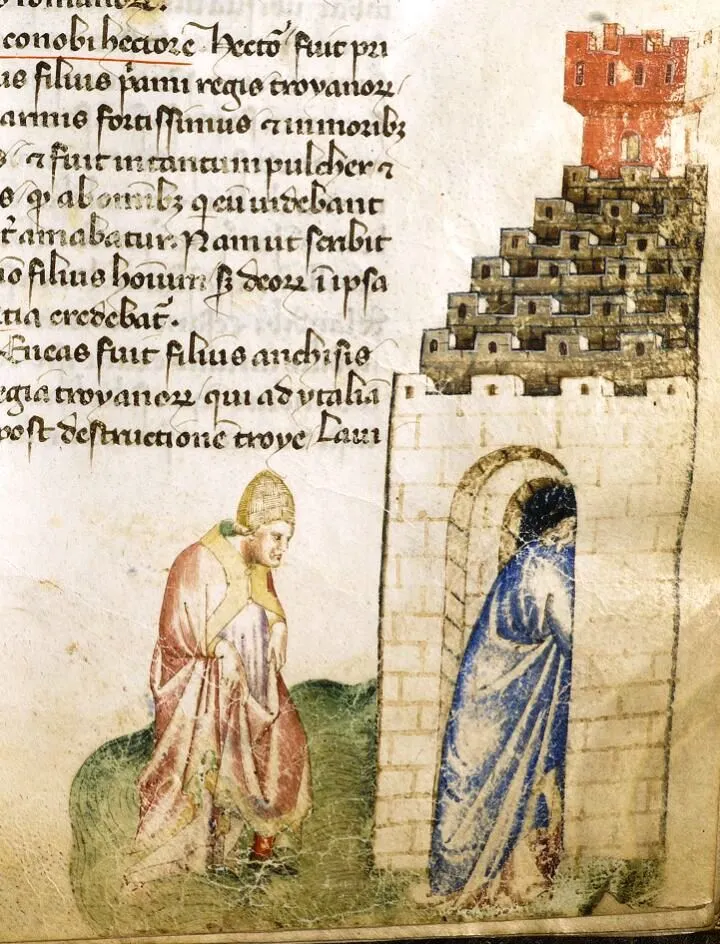 conobi hectorē Hecto᷒ fuit pri
us filius p̄ami regis troyanorꝝ
armis fortissimus ⁊ in moribꝫ
⁊ fuit in tantum pulcher ⁊
s ꝙ ab omībꝫ q eū uidebant
t̄ amabatur. Nam ut scribit
filius homin̄ sꝫ deorꝝ ī ipsa
tia credebat̄.
Eneas fuit filius anchisis
egia troyanorꝝ qui ad ytalia
post destructionē troye Laui